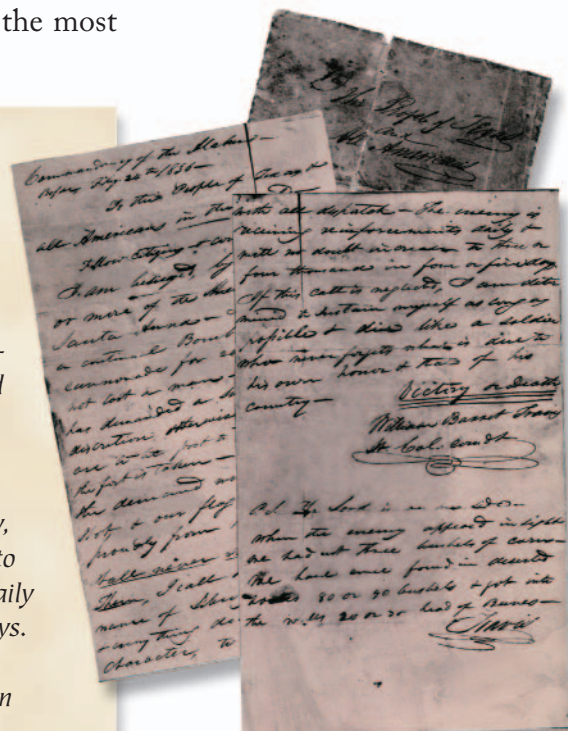 the most
To The People of Texas
and
All Americans
Commandancy of the Alamo—
Bejar, Fby. 24th 1836—
To the People of Texas &
all Americans in the
Fellow Citizens &
I am besieged, by
or more of the
Santa Anna—
a continual Bomb
cannonade for
not lost a man
has demanded a
discretion, otherwise
are to be put to
the fort is taken—
the demand
shot, & our flag
proudly from
shall never
Then, I call
name of Liberty
& any thing
character, to
with all dispatch— The enemy is
receiving reinforcements daily &
will no doubt increase to three or
four thousand in four or five days.
If this call is neglected, I am deter
mined to sustain myself as long as
possible & die like a soldier
who never forgets what is due to
his own honor & that of his
country—
Victory or Death
William Barret Travis
Lt. Col. comdt
P.S. The Lord is on our side—
When the enemy appeard in sight
we had not three bushels of corn—
We have since found in deserted
houses 80 or 90 bushels & got into
the walls 20 or 30 head of Beeves—
Travis
to
aily
ys.
n